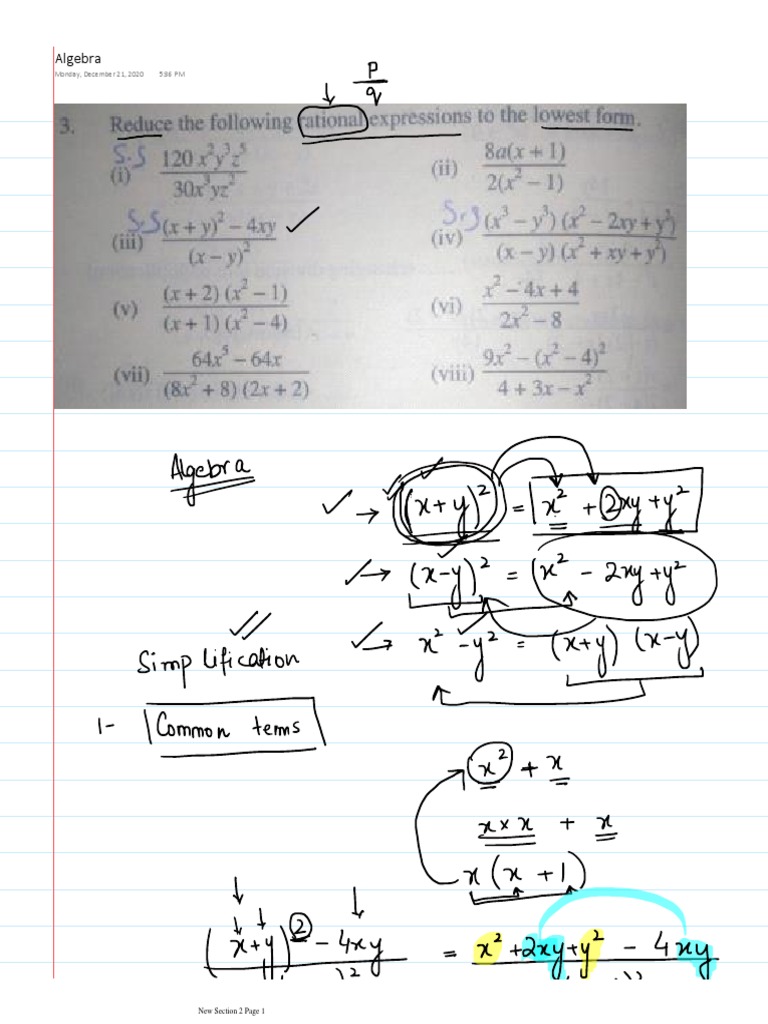 Algebra
Monday, December 21, 2020 5:36 PM
p/q
3. Reduce the following rational expressions to the lowest form.
S.S S.S
(i) 120 x²y³z⁵ / 30x³yz² (ii) 8a(x + 1) / 2(x² − 1)
(iii) (x + y)² − 4xy / (x − y)² (iv) (x³ − y³) (x² − 2xy + y²) / (x − y) (x² + xy + y²)
(v) (x + 2) (x² − 1) / (x + 1) (x² − 4) (vi) x² − 4x + 4 / 2x² − 8
(vii) 64x⁵ − 64x / (8x² + 8) (2x + 2) (viii) 9x² − (x² − 4)² / 4 + 3x − x²
Algebra
✓ → (x+y)² = x² + 2xy + y²
✓ → (x−y)² = (x² − 2xy + y²
✓ → x² − y² = (x+y) (x−y)
Simplification
1- Common terms
x² + x
x × x + x
x(x + 1)
(x+y)² − 4xy = x² + 2xy + y² − 4xy
New Section 2 Page 1